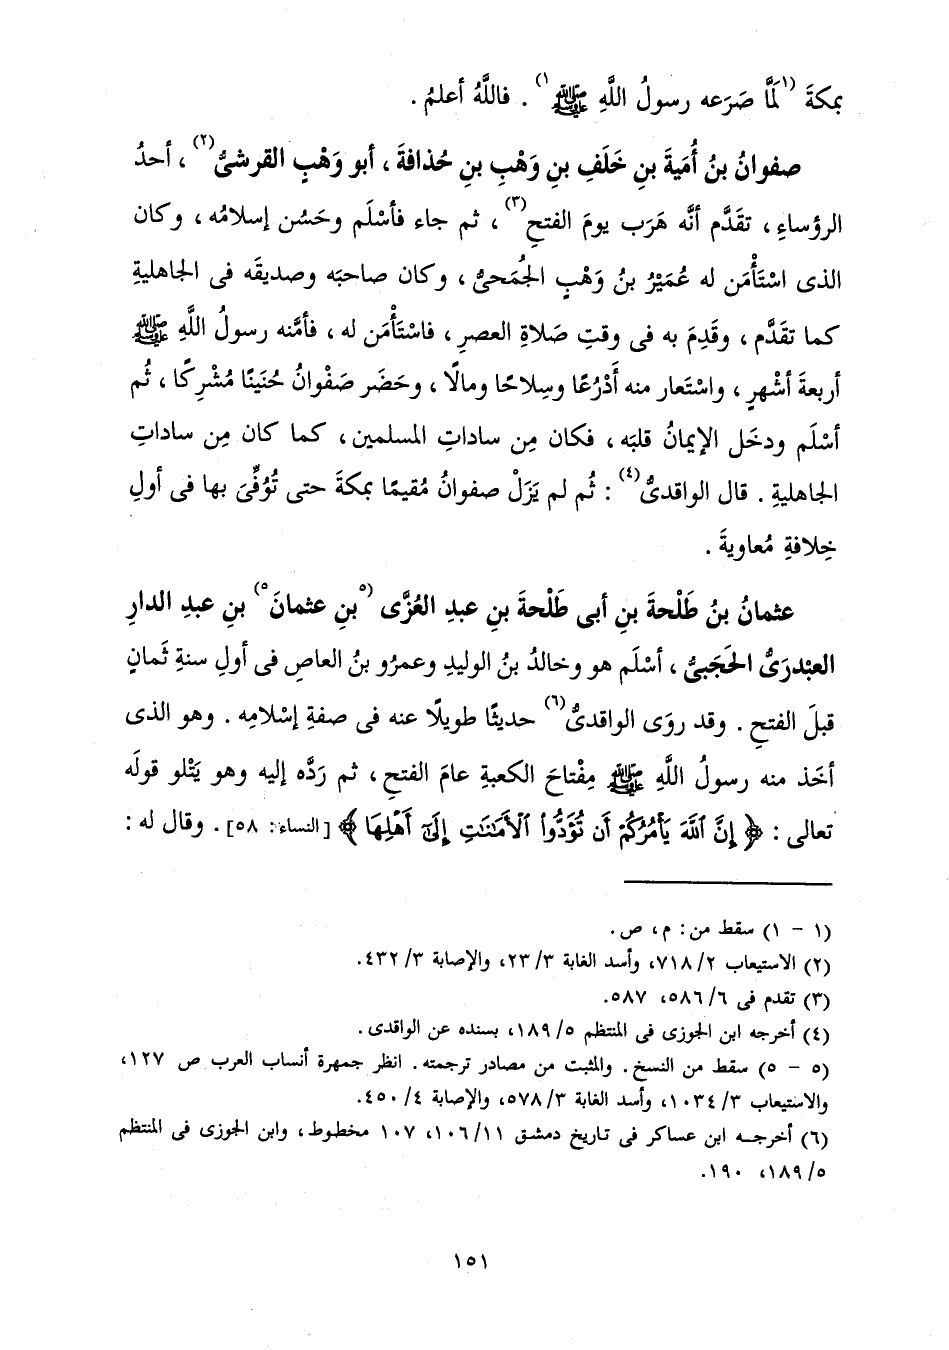 بمكةَ (١لمَّا صَرَعه رسولُ اللَّهِ ﷺ١) . فاللَّهُ أعلمُ .
صفوانُ بنُ أُميةَ بنِ خَلَفِ بنِ وَهْبِ بنِ حُذافةَ ، أبو وَهْبٍ القرشىُّ(٢) ، أحدُ
الرؤساءِ ، تقدَّم أنَّه هَرَب يومَ الفتحِ(٣) ، ثم جاء فأسْلَم وحَسُن إسلامُه ، وكان
الذى اسْتَأْمَن له عُمَيْرُ بنُ وَهْبٍ الجُمَحىُّ ، وكان صاحبَه وصديقَه فى الجاهليةِ
كما تقدَّم ، وقَدِمَ به فى وقتِ صَلاةِ العصرِ ، فاسْتَأْمَن له ، فأمَّنه رسولُ اللَّهِ ﷺ
أربعةَ أشْهرٍ ، واسْتَعار منه أَدْرُعًا وسِلاحًا ومالًا ، وحَضَر صَفْوانُ حُنَينًا مُشْرِكًا ، ثُم
أسْلَم ودخَل الإيمانُ قلبَه ، فكان مِن ساداتِ المسلمين ، كما كان مِن ساداتِ
الجاهليةِ . قال الواقدىُّ(٤) : ثُم لم يَزَلْ صفوانُ مُقيمًا بمكةَ حتى تُوُفِّىَ بها فى أولِ
خِلافةِ مُعاويةَ .
عثمانُ بنُ طَلْحةَ بنِ أبى طَلْحةَ بنِ عبدِ العُزَّى (٥بنِ عثمانَ٥) بنِ عبدِ الدارِ
العبْدرَىُّ الحَجَبىُّ ، أسْلَم هو وخالدُ بنُ الوليدِ وعمرُو بنُ العاصِ فى أولِ سنةِ ثَمانٍ
قبلَ الفتحِ . وقد روَى الواقدىُّ(٦) حديثًا طويلًا عنه فى صفةِ إسْلامِه . وهو الذى
أخَذ منه رسولُ اللَّهِ ﷺ مِفْتاحَ الكعبةِ عامَ الفتحِ ، ثم رَدَّه إليه وهو يَتْلو قولَه
تعالى : ﴿ إِنَّ ٱللَّهَ يَأْمُرُكُمْ أَن تُؤَدُّوا۟ ٱلْأَمَٰنَٰتِ إِلَىٰٓ أَهْلِهَا ﴾ [النساء: ٥٨] . وقال له :
(١ - ١) سقط من: م، ص.
(٢) الاستيعاب ٢/ ٧١٨، وأسد الغابة ٣/ ٢٣، والإصابة ٣/ ٤٣٢.
(٣) تقدم فى ٦/ ٥٨٦، ٥٨٧.
(٤) أخرجه ابن الجوزى فى المنتظم ٥/ ١٨٩، بسنده عن الواقدى.
(٥ - ٥) سقط من النسخ. والمثبت من مصادر ترجمته. انظر جمهرة أنساب العرب ص ١٢٧،
والاستيعاب ٣/ ١٠٣٤، وأسد الغابة ٣/ ٥٧٨، والإصابة ٤/ ٤٥٠.
(٦) أخرجه ابن عساكر فى تاريخ دمشق ١١/ ١٠٦، ١٠٧ مخطوط، وابن الجوزى فى المنتظم
٥/ ١٨٩، ١٩٠.
١٥١